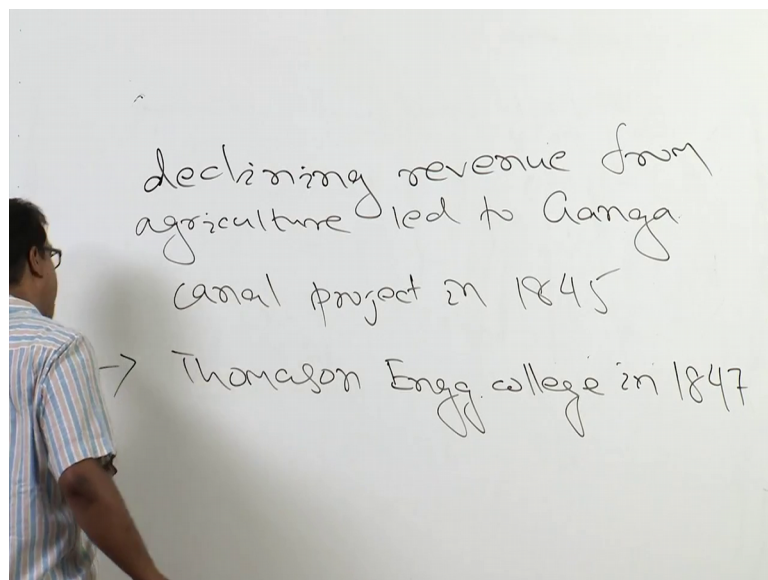 declining revenue from
agriculture led to Ganga
canal project in 1845
→ Thomason Engg. college in 1847